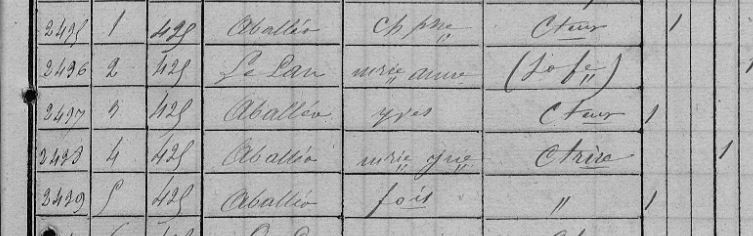 2435 1 425 Aballéo ch phe Cteur 1
2436 2 425 Le Lan mrie anne (Sa fe) 1
2437 3 425 Aballéo yves Cteur 1
2438 4 425 Aballéo mrie yne Ctrice 1
2439 5 425 Aballéo fois " 1